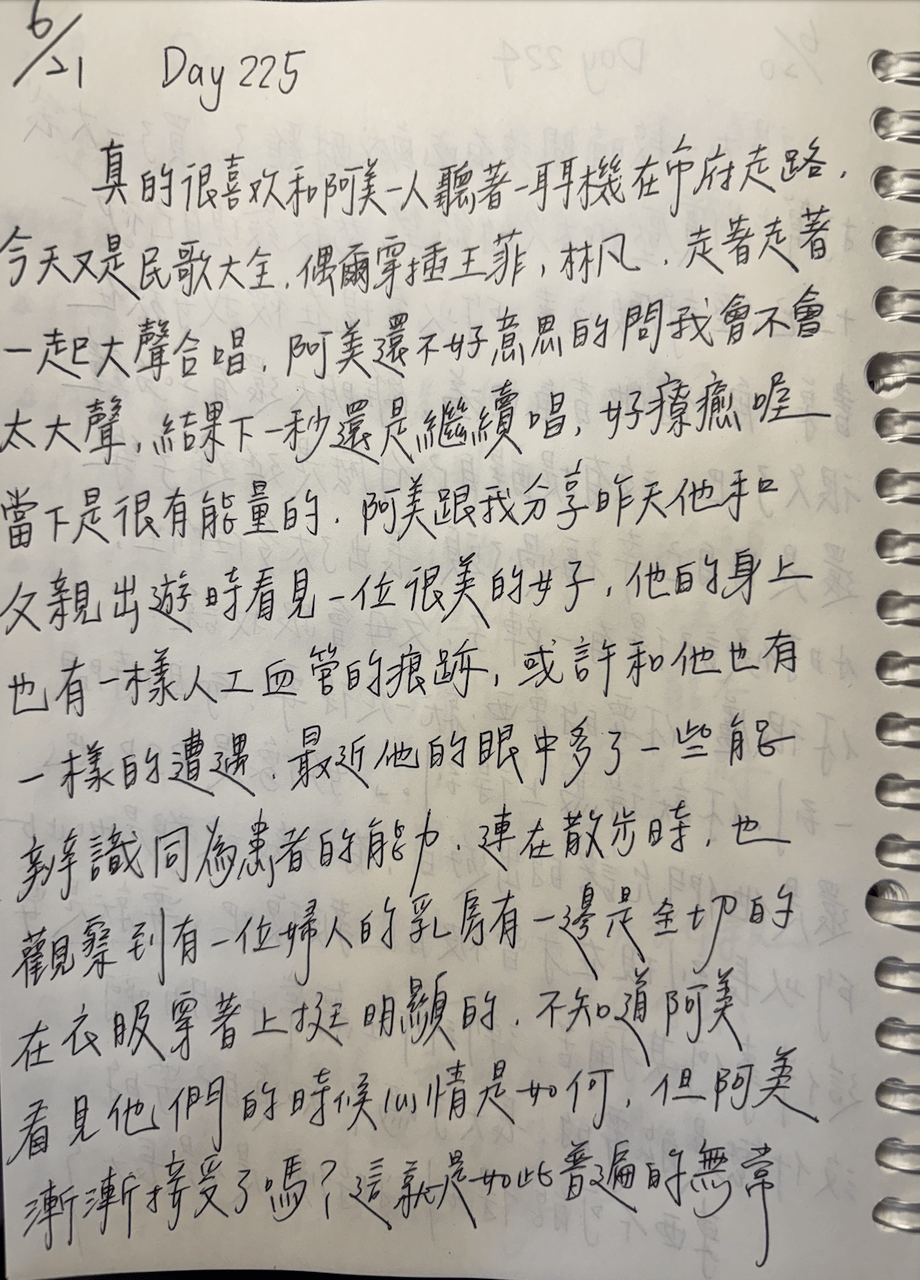 6/21 Day 225
真的很喜欢和阿美一人聽著一耳機在市府走路.
今天又是民歌大全.偶爾穿插王菲,林凡.走著走著
一起大聲合唱.阿美還不好意思的問我會不會
太大聲,結果下一秒還是繼續唱,好療癒喔
當下是很有能量的.阿美跟我分享昨天他和
父親出遊時看見一位很美的女子,他的身上
也有一樣人工血管的痕跡,或許和他也有
一樣的遭遇.最近他的眼中多了一些能
辨識同為患者的能力.連在散步時,也
觀察到有一位婦人的乳房有一邊是全切的
在衣服穿著上挺明顯的.不知道阿美
看見他們的時候心情是如何,但阿美
漸漸接受了嗎?這就是如此普遍的無常